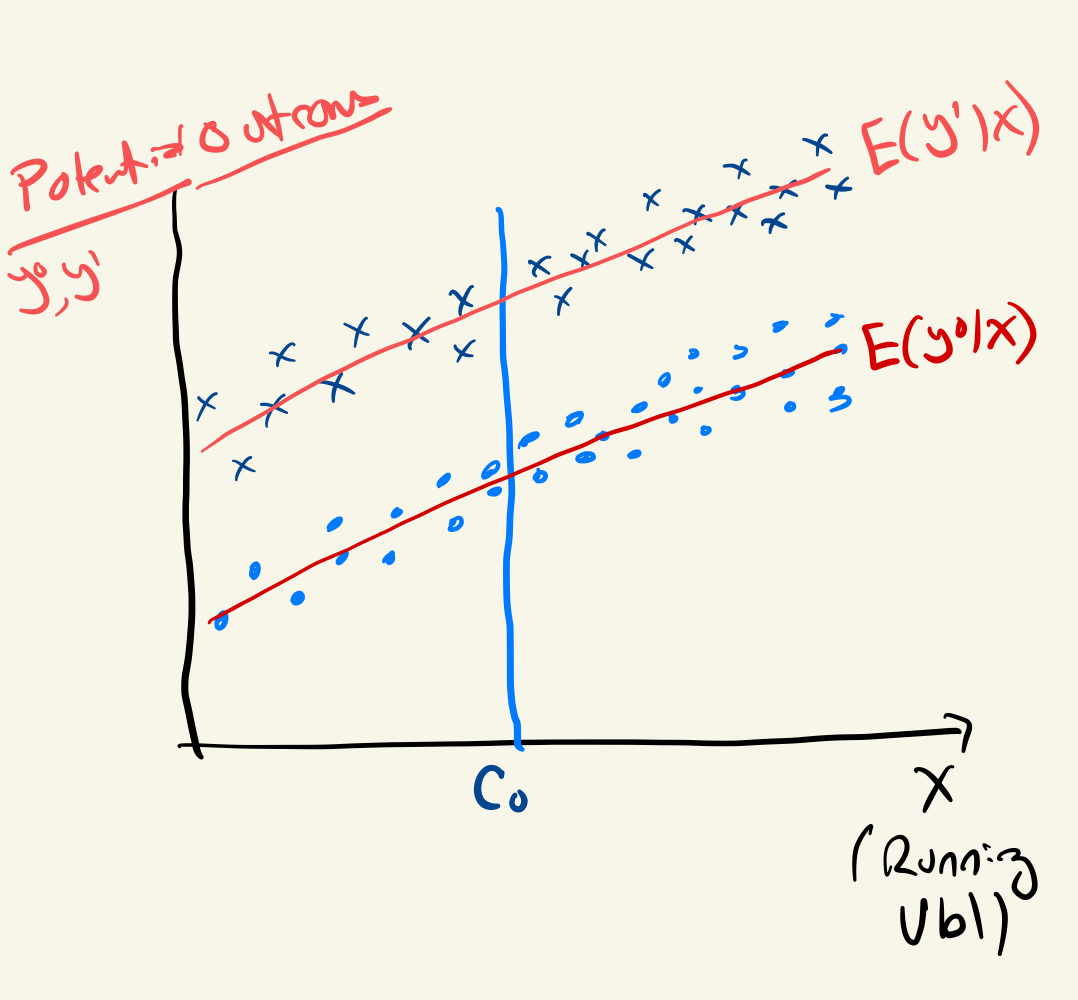 Potential Outcomes
y⁰, y¹
E(y¹|X)
E(y⁰|X)
C₀
X
(Running
Vbl)